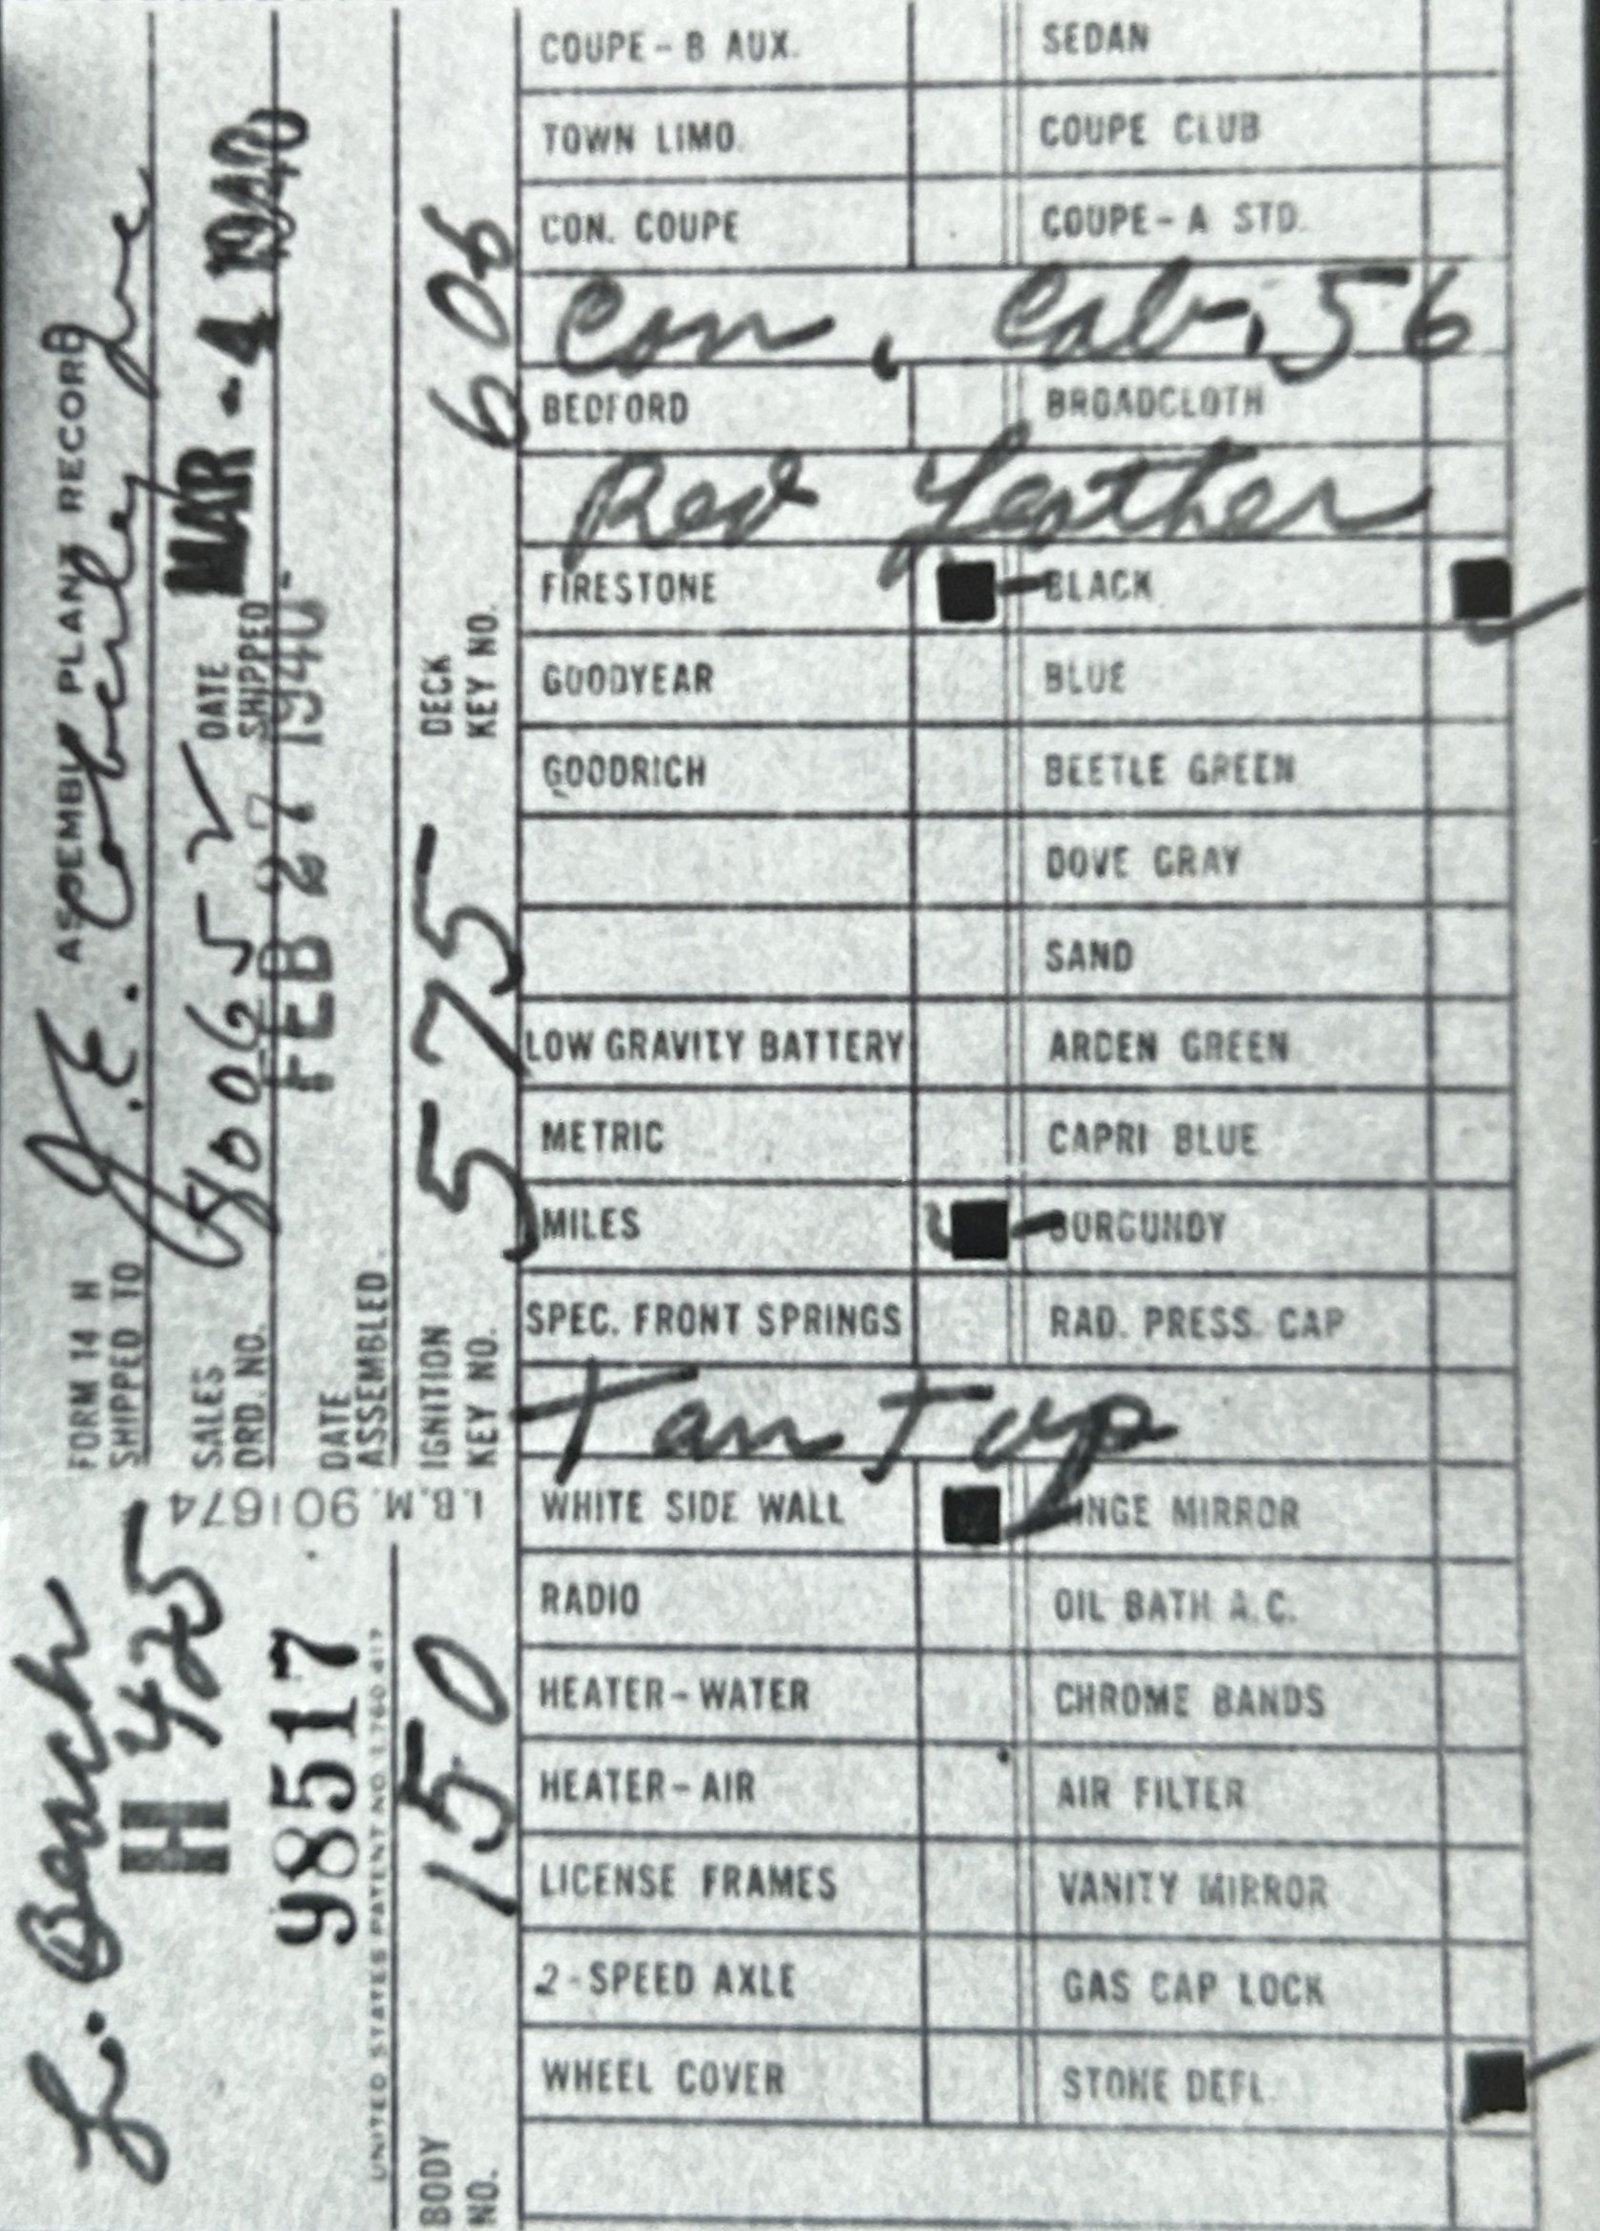 FORM 14 H ASSEMBLY PLANT RECORD
SHIPPED TO J.E. Coberley Inc
SALES ORD. NO. 800652
DATE SHIPPED MAR - 4 1940
DATE ASSEMBLED FEB 27 1940
IGNITION KEY NO. 575
DECK KEY NO. 606
L. Beach
H 425
98517
I.B.M. 901674
UNITED STATES PATENT NO. 1,760,417
BODY NO. 150
COUPE - B AUX. SEDAN
TOWN LIMO. COUPE CLUB
CON. COUPE COUPE - A STD.
Con. Cab. 56
BEDFORD BROADCLOTH
Red Leather
FIRESTONE BLACK
GOODYEAR BLUE
GOODRICH BEETLE GREEN
DOVE GRAY
SAND
LOW GRAVITY BATTERY ARDEN GREEN
METRIC CAPRI BLUE
MILES BURGUNDY
SPEC. FRONT SPRINGS RAD. PRESS. CAP
Tan Top
WHITE SIDE WALL HINGE MIRROR
RADIO OIL BATH A.C.
HEATER - WATER CHROME BANDS
HEATER - AIR AIR FILTER
LICENSE FRAMES VANITY MIRROR
2 - SPEED AXLE GAS CAP LOCK
WHEEL COVER STONE DEFL.